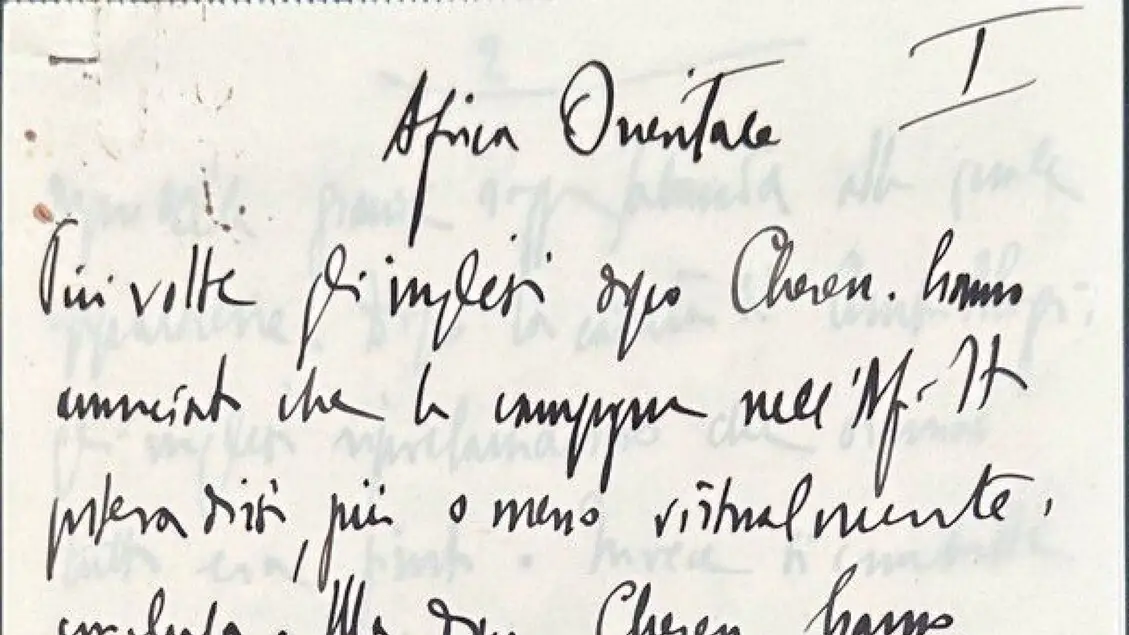 I
Africa Orientale
Più volte gli inglesi dopo Cheren. hanno
annunciato che la campagna nell'Af. It
poteva dirsi, più o meno virtualmente,
conclusa. Ma dopo Cheren hanno